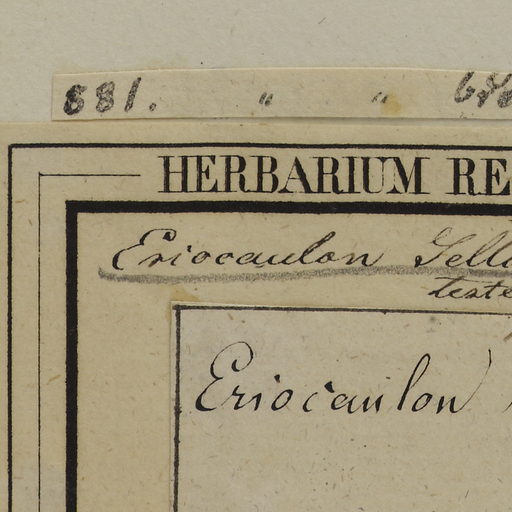 881. " "
HERBARIUM RE
Eriocaulon Sello
teste
Eriocaulon